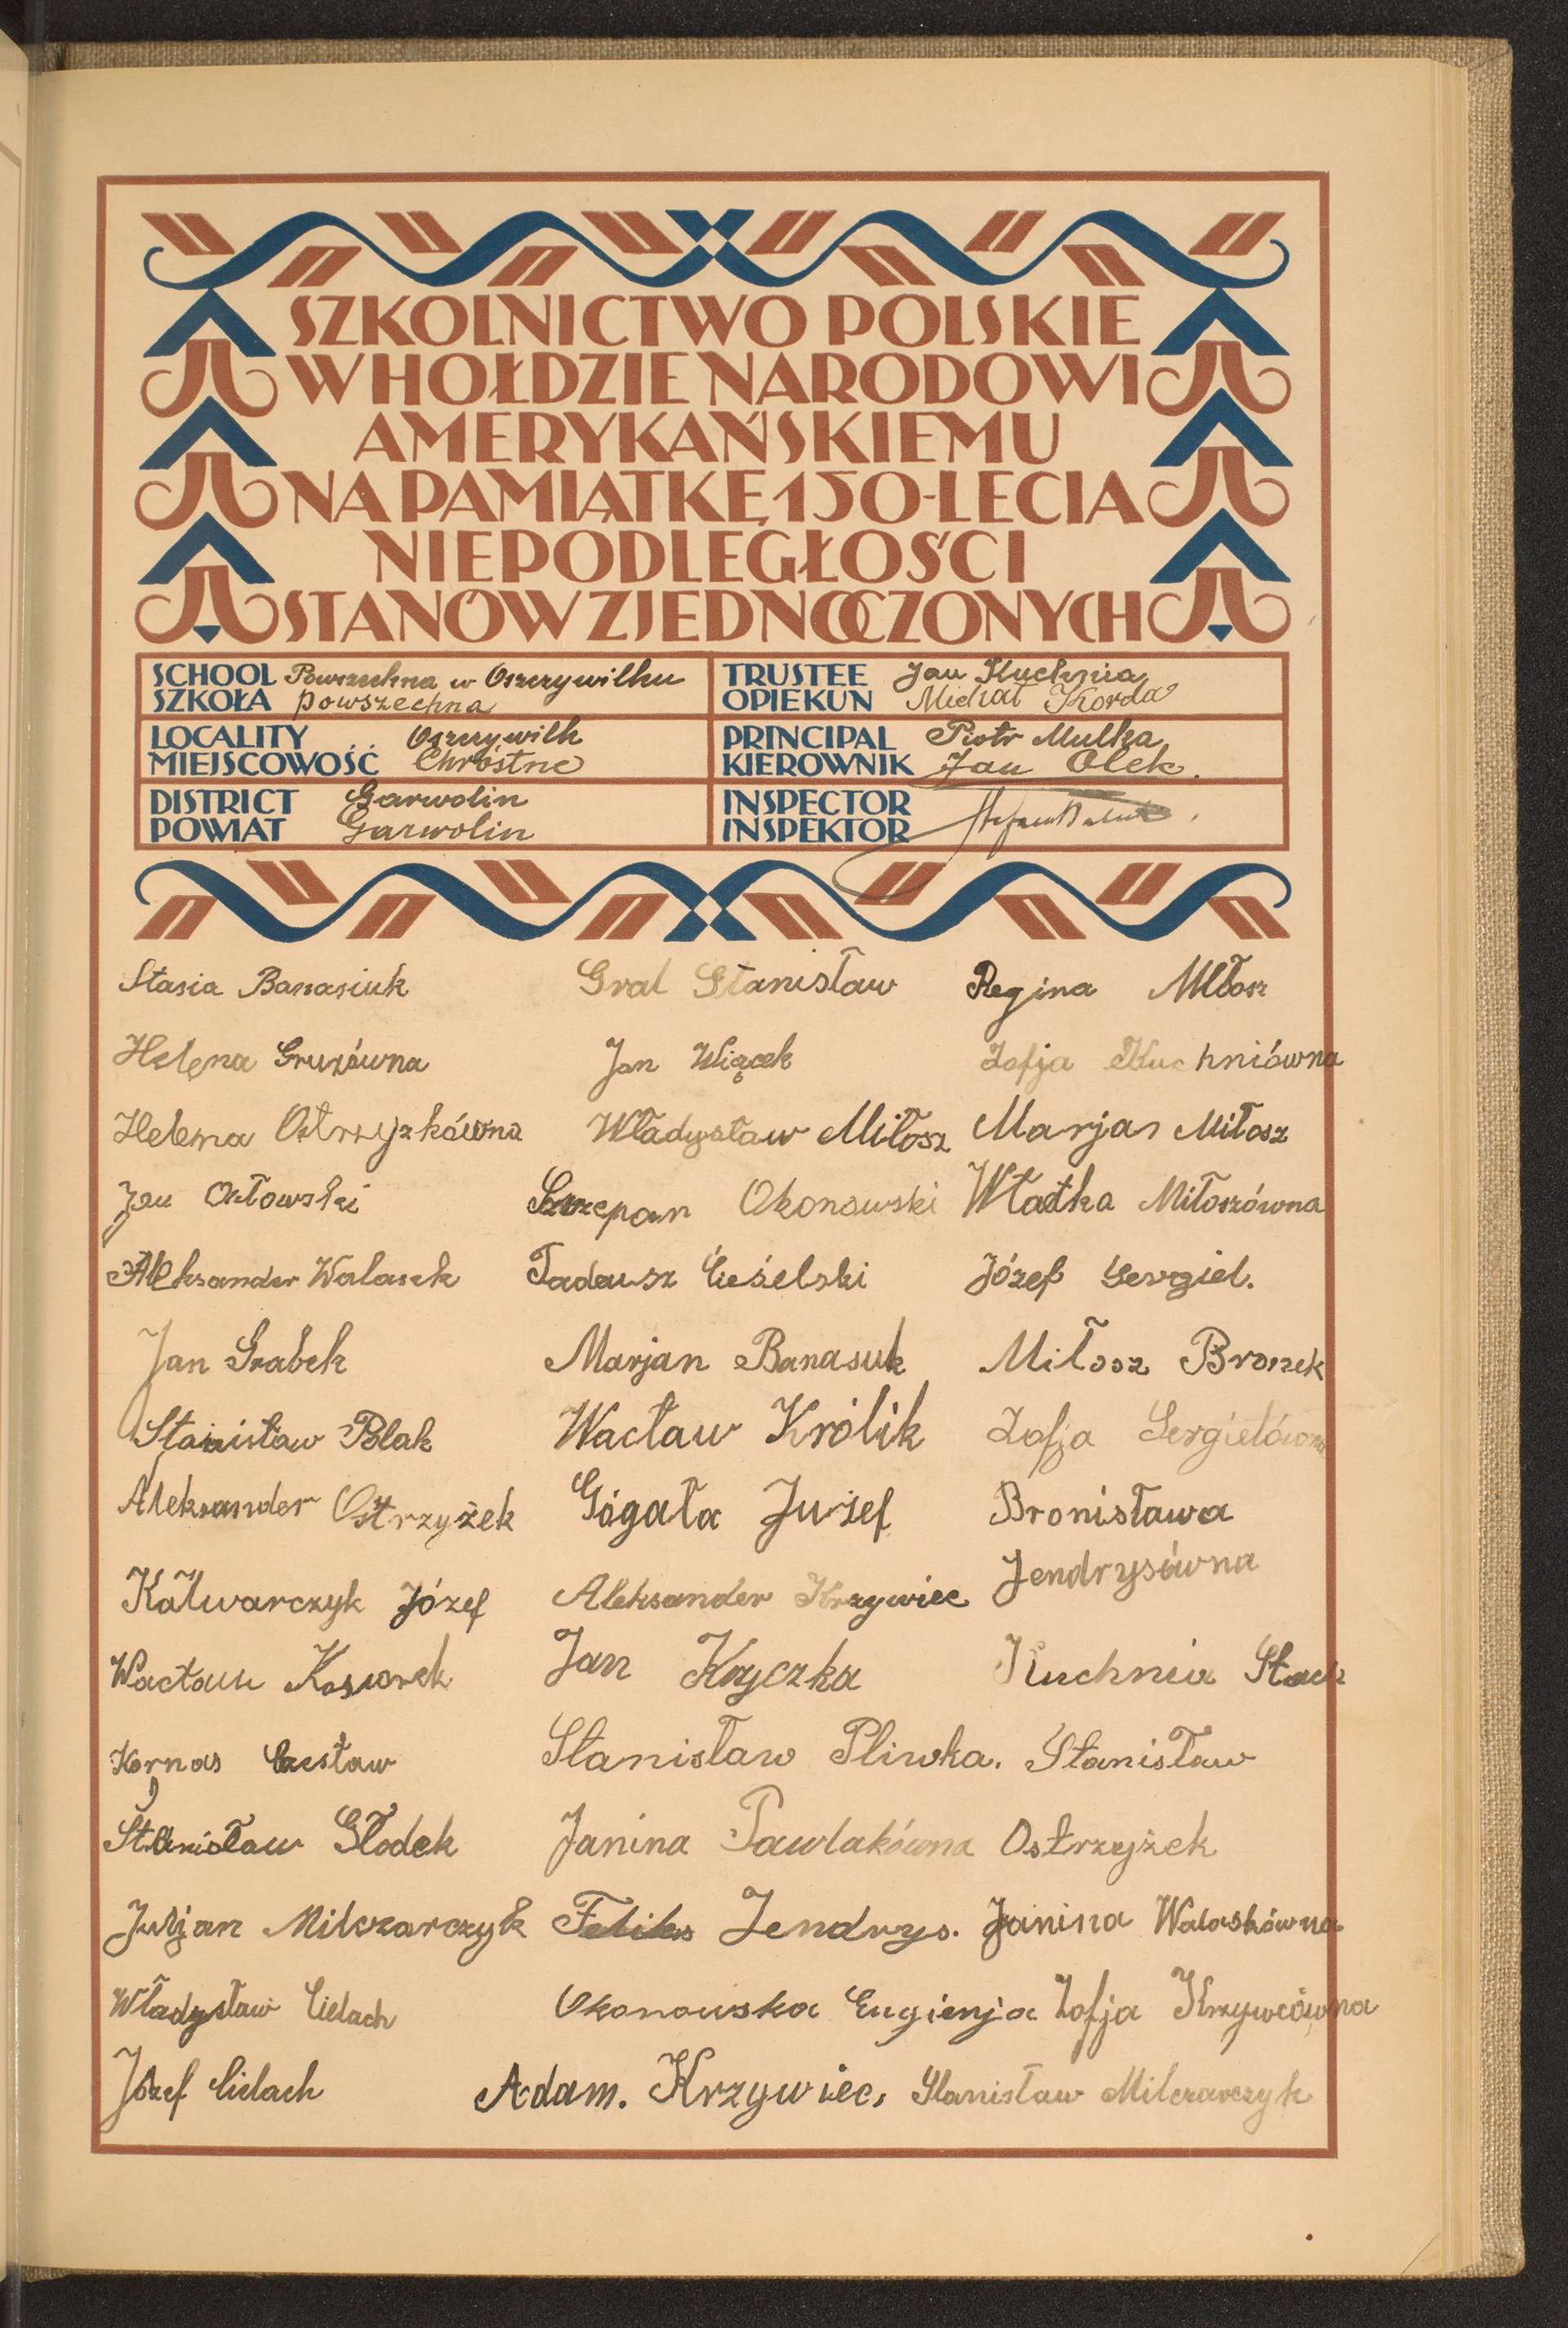 SZKOLNICTWO POLSKIE
W HOŁDZIE NARODOWI
AMERYKAŃSKIEMU
NA PAMIĄTKĘ 150-LECIA
NIEPODLEGŁOŚCI
STANÓW ZJEDNOCZONYCH
SCHOOL Powszechna w Oszczywilku
SZKOŁA powszechna
TRUSTEE Jan Kuchnia
OPIEKUN Michał Korda
LOCALITY Oszczywilk
MIEJSCOWOŚĆ Chrostne
PRINCIPAL Piotr Mulka
KIEROWNIK Jan Olek.
DISTRICT Garwolin
POWIAT Garwolin
INSPECTOR
INSPEKTOR
Stasia Banasiuk
Helena Gruzówna
Helena Ostrzyżkówna
Jan Ochowski
Aleksander Walasek
Jan Grabek
Stanisław Polak
Aleksander Ostrzyżek
Kałwarczyk Józef
Wacław Kosiorek
Kornas Czesław
Stanisław Głodek
Juljan Milczarczyk
Władysław Cielach
Józef Cielach
Gral Stanisław
Jan Wiącek
Władysław Miłosz
Szczepan Okonowski
Tadeusz Cieśelski
Marjan Banasuk
Wacław Królik
Gógała Juzef
Aleksander Krzywiec
Jan Kryczka
Stanisław Pliwka.
Janina Pawlakówna
Feliks Jendrys.
Okonowska Eugienja
Adam. Krzywiec,
Regina Miłosz
Zofja Kuchniówna
Marjan Miłosz
Władka Miłoszówna
Józef Sergiel.
Miłosz Bronek
Zofja Sergielówna
Bronisława
Jendrysówna
Kuchnia Stach
Stanisław
Ostrzyżek
Janina Walaskówna
Zofja Krzywcówna
Stanisław Milczarczyk